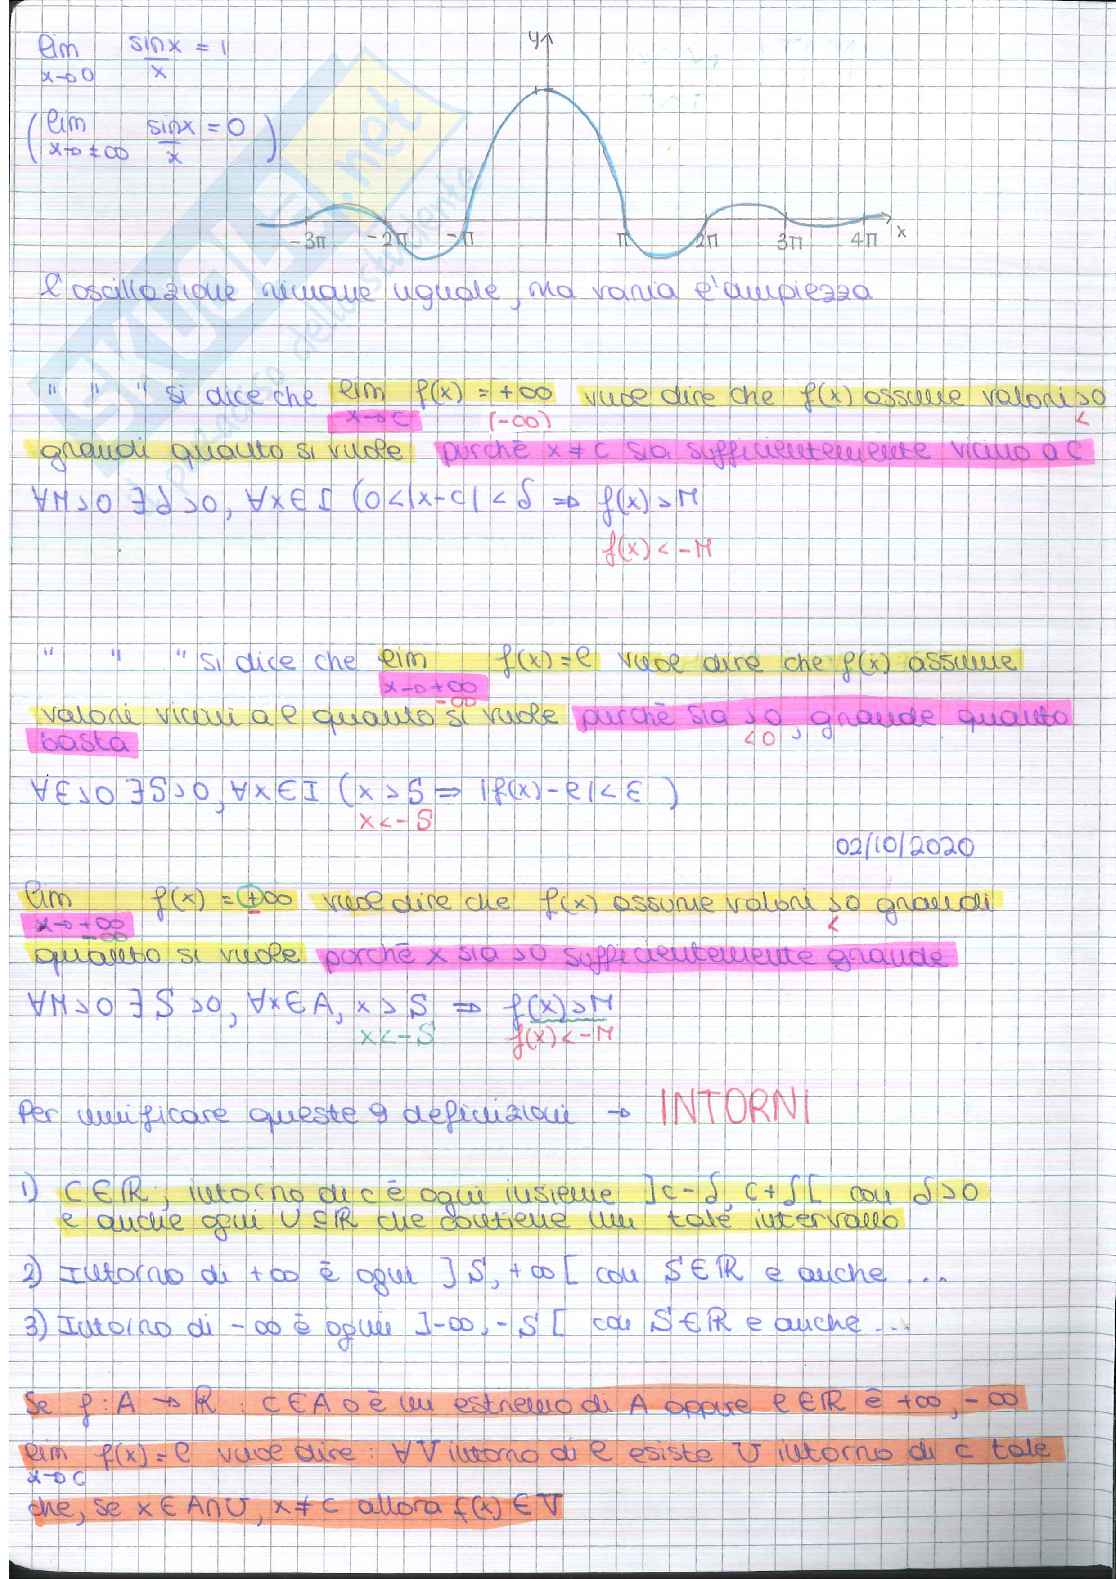 lim sinx/x = 1
x→0
y
(lim sinx/x = 0)
x→±∞
-3π -2π -π π 2π 3π 4π x
l'oscillazione rimane uguale, ma varia l'ampiezza
" " " si dice che lim f(x) = +∞ vuole dire che f(x) assume valori >0
x→c (-∞) <
grandi quanto si vuole purché x ≠ c sia sufficientemente vicino a c
∀M>0 ∃δ>0, ∀x∈I (0<|x-c|<δ ⇒ f(x)>M
f(x)<-M
" " " si dice che lim f(x)=l vuole dire che f(x) assume
x→+∞
-∞
valori vicini a l quanto si vuole purché sia >0, grande quanto
<0
basta
∀ε>0 ∃S>0, ∀x∈I (x>S ⇒ |f(x)-l|<ε)
x<-S
02/10/2020
lim f(x)=±∞ vuole dire che f(x) assume valori >0 grandi
x→+∞ <
-∞
quanto si vuole porché x sia >0 sufficientemente grande
∀M>0 ∃S>0, ∀x∈A, x>S ⇒ f(x)>M
x<-S f(x)<-M
Per unificare queste 9 definizioni → INTORNI
1) c∈ℝ, intorno di c è ogni insieme ]c-δ, c+δ[ con δ>0
e anche ogni U⊆ℝ che contiene un tale intervallo
2) Intorno di +∞ è ogni ]S, +∞[ con S∈ℝ e anche ...
3) Intorno di -∞ è ogni ]-∞, -S[ con S∈ℝ e anche ...
Se f: A → ℝ : c∈A o è un estremo di A oppure l∈ℝ è +∞, -∞
lim f(x)=l vuole dire: ∀V intorno di l esiste U intorno di c tale
x→c
che, se x∈A∩U, x≠c allora f(x)∈V
SKUOLA.net
dello studente